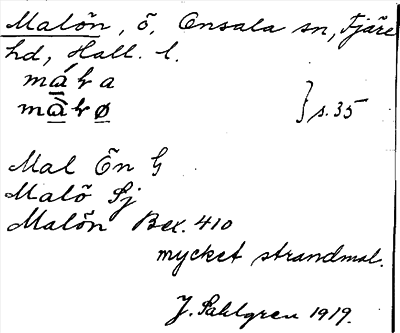 Malön, ö, Onsala sn, Fjäre
hd, Hall. l.
mála
màlø } s. 35
Mal Ön G
Malö Sj
Malön Bex. 410
mycket strandmal.
J. Sahlgren 1919.